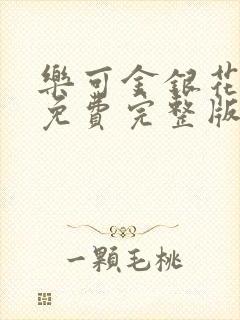 樂可金銀花
免費完整版
一顆毛桃